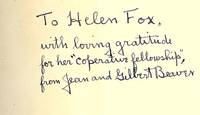 To Helen Fox,
with loving gratitude
for her "coperative fellowship",
from Jean and Gilbert Beaver